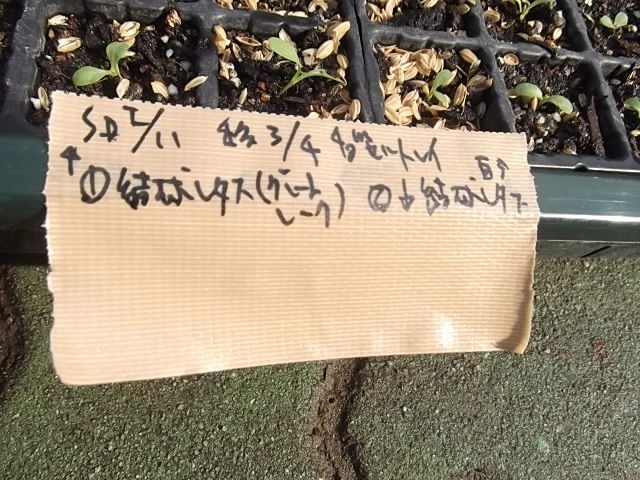 SD 2/11 移 3/4 セルトレイ
↑① 結球レタス(グレート
レーク) ②↓結球レタス